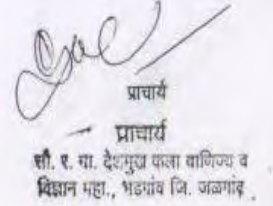 प्राचार्य
प्राचार्य
सौ. र. ना. देशमुख कला वाणिज्य व
विज्ञान महा., भडगांव जि. जळगांव